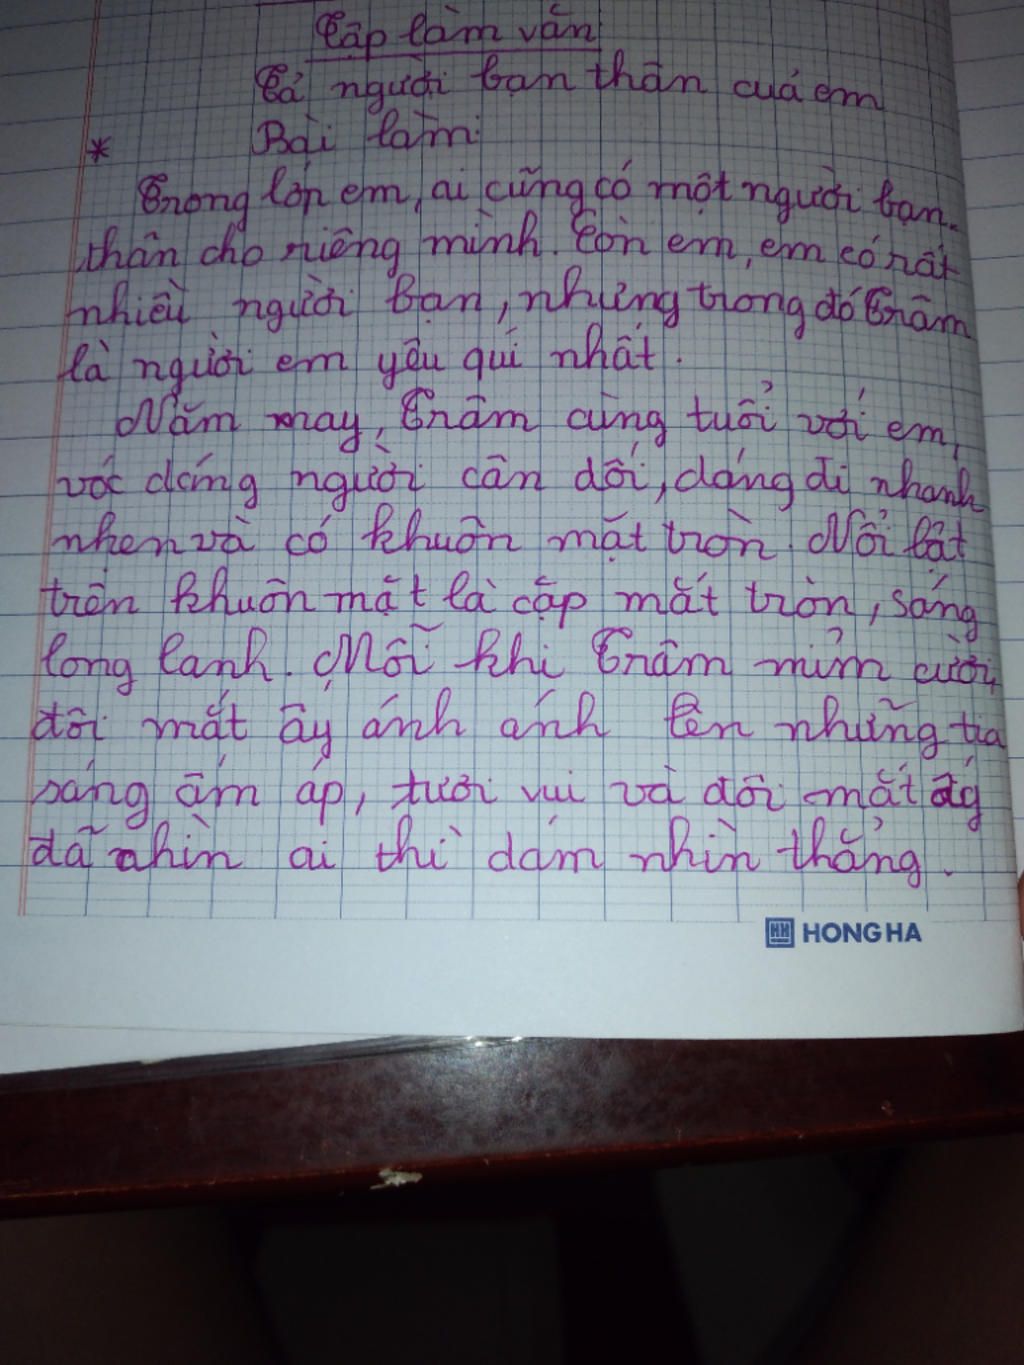 Tập làm văn
Tả người bạn thân cuả em
* Bài làm:
Trong lớp em, ai cũng có một người bạn
thân cho riêng mình. Còn em, em có rất
nhiều người bạn, nhưng trong đó Trâm
là người em yêu quí nhất.
Năm nay, Trâm cùng tuổi với em,
vóc dáng người cân đối, dáng đi nhanh
nhẹn và có khuôn mặt tròn. Nổi bật
trên khuôn mặt là cặp mắt tròn, sáng
long lanh. Mỗi khi Trâm mỉm cười,
đôi mắt ấy ánh ánh lên những tia
sáng ấm áp, tươi vui và đôi mắt ấy
đã nhìn ai thì dám nhìn thẳng.
HH HONG HA